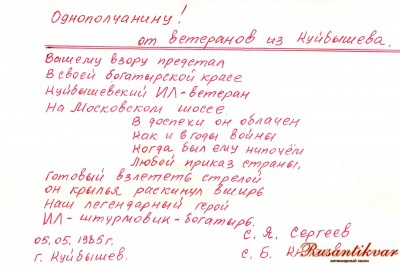 Однополчанину!
от ветеранов из Куйбышева.
Вашему взору предстал
В своей богатырской красе
Куйбышевский ИЛ-ветеран
На Московском шоссе.
В доспехи он облачен
Как и в годы войны
Когда был ему нипочём
Любой приказ страны.
Готовый взлететь стрелой
он крылья раскинул вширь
Наш легендарный герой
ИЛ-штурмовик-богатырь.
05.05.1985г
С. Я. Сергеев
г. Куйбышев.
С. Б.
Rusantikvar